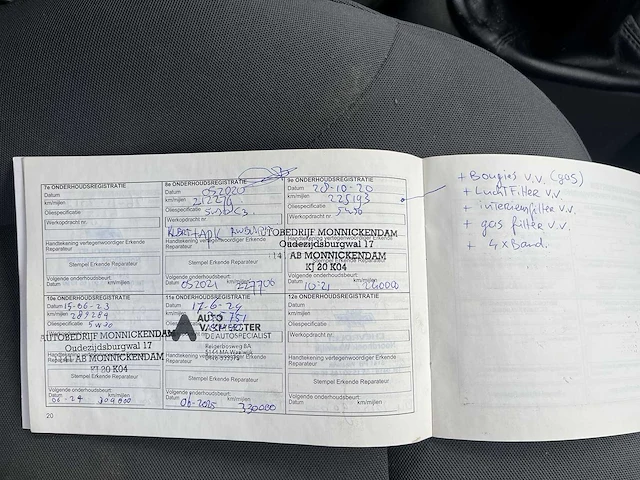 7e ONDERHOUDSREGISTRATIE
Datum
km/mijlen
Oliespecificatie
Werkopdracht nr.
Handtekening vertegenwoordiger Erkende Reparateur
Stempel Erkende Reparateur
Volgende onderhoudsbeurt:
Datum km/mijlen
8e ONDERHOUDSREGISTRATIE
Datum 05 2020
km/mijlen
Oliespecificatie 5w30 C3
Werkopdracht nr.
Handtekening vertegenwoordiger Erkende Reparateur
Stempel Erkende Reparateur
Volgende onderhoudsbeurt:
Datum km/mijlen
05 2021 227706
9e ONDERHOUDSREGISTRATIE
Datum 28-10-20
km/mijlen 225193
Oliespecificatie 5w30
Werkopdracht nr.
AUTOBEDRIJF MONNICKENDAM
Oudezijdsburgwal 17
1141 AB MONNICKENDAM
KJ 20 K04
Volgende onderhoudsbeurt:
Datum km/mijlen
10-21
10e ONDERHOUDSREGISTRATIE
Datum 15-06-23
km/mijlen 289284
Oliespecificatie 5w30
AUTOBEDRIJF MONNICKENDAM
Oudezijdsburgwal 17
1141 AB MONNICKENDAM
KJ 20 K04
Stempel Erkende Reparateur
Volgende onderhoudsbeurt:
Datum km/mijlen
06-24
11e ONDERHOUDSREGISTRATIE
Datum 17-6-24
AUTO
VAKMEESTER
DE AUTOSPECIALIST
Reigerboweg 8A
5144 MA Waalwijk
Handtekening vertegenwoordiger Erkende Reparateur
Stempel Erkende Reparateur
Volgende onderhoudsbeurt:
Datum km/mijlen
06-2025 330000
12e ONDERHOUDSREGISTRATIE
Datum
km/mijlen
Oliespecificatie
Werkopdracht nr.
Handtekening vertegenwoordiger Erkende Reparateur
Stempel Erkende Reparateur
Volgende onderhoudsbeurt:
Datum km/mijlen
20
+ Bougies v.v. (gas)
+ Luchtfilter v.v.
+ interieurfilter v.v.
+ gas filter v.v.
+ 4x Band.